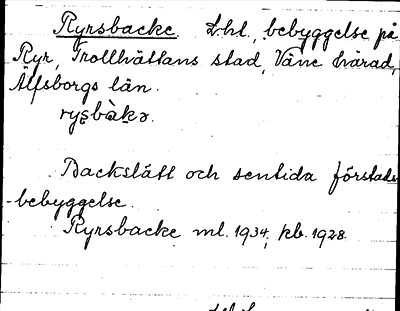 Ryrsbacke. Lht., bebyggelse på
Ryr, Trollhättans stad, Väne härad,
Älfsborgs län.
Backslätt och sentida förstads-
-bebyggelse.
Ryrsbacke ml. 1934, kb. 1928.